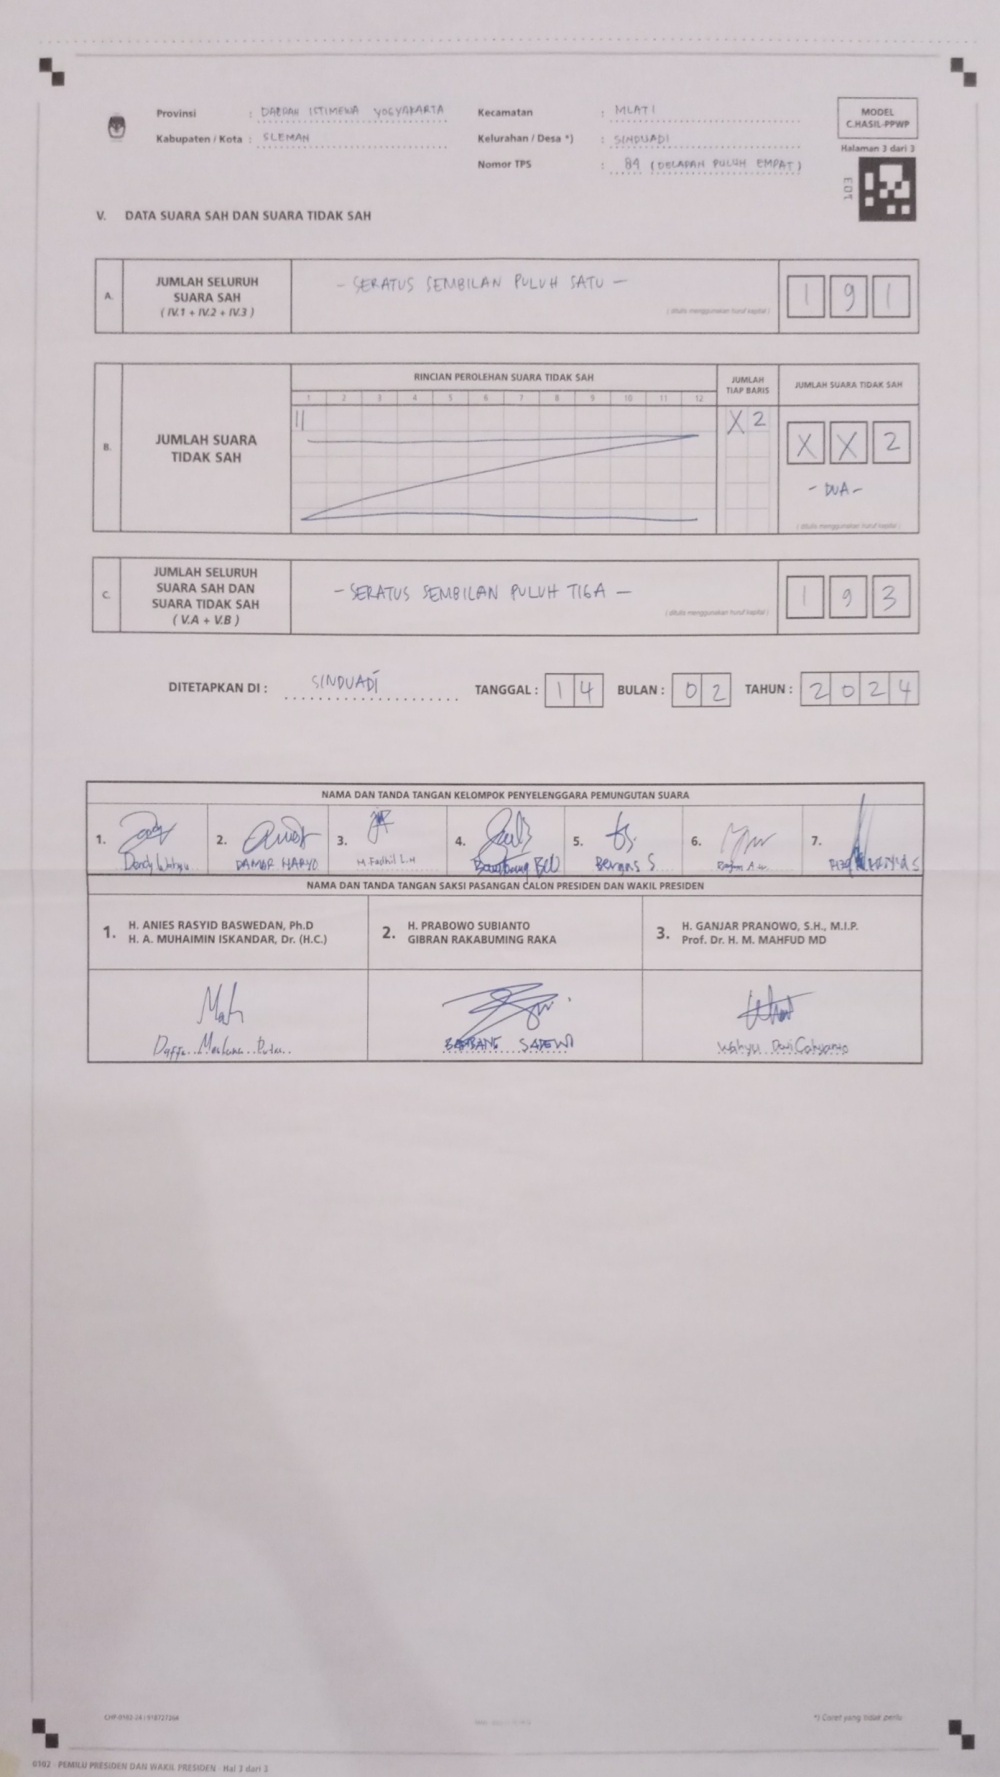 Provinsi : DAERAH ISTIMEWA YOGYAKARTA
Kabupaten / Kota : SLEMAN
Kecamatan : MLATI
Kelurahan / Desa *) : SINDUADI
Nomor TPS : 84 (DELAPAN PULUH EMPAT)
MODEL
C.HASIL-PPWP
Halaman 3 dari 3
103
V. DATA SUARA SAH DAN SUARA TIDAK SAH
A. JUMLAH SELURUH
SUARA SAH
( IV.1 + IV.2 + IV.3 )
- SERATUS SEMBILAN PULUH SATU -
( ditulis menggunakan huruf kapital )
1 9 1
B. JUMLAH SUARA
TIDAK SAH
RINCIAN PEROLEHAN SUARA TIDAK SAH
1 2 3 4 5 6 7 8 9 10 11 12
||
JUMLAH
TIAP BARIS
X 2
JUMLAH SUARA TIDAK SAH
X X 2
- DUA -
( ditulis menggunakan huruf kapital )
C. JUMLAH SELURUH
SUARA SAH DAN
SUARA TIDAK SAH
( V.A + V.B )
- SERATUS SEMBILAN PULUH TIGA -
( ditulis menggunakan huruf kapital )
1 9 3
DITETAPKAN DI : SINDUADI TANGGAL : 14 BULAN : 02 TAHUN : 2024
NAMA DAN TANDA TANGAN KELOMPOK PENYELENGGARA PEMUNGUTAN SUARA
1. 2. 3. 4. 5. 6. 7.
Dandy Wahyu DAMAR HARYO M. Fadhil L.H Bergas S
NAMA DAN TANDA TANGAN SAKSI PASANGAN CALON PRESIDEN DAN WAKIL PRESIDEN
1. H. ANIES RASYID BASWEDAN, Ph.D
H. A. MUHAIMIN ISKANDAR, Dr. (H.C.)
2. H. PRABOWO SUBIANTO
GIBRAN RAKABUMING RAKA
3. H. GANJAR PRANOWO, S.H., M.I.P.
Prof. Dr. H. M. MAHFUD MD
Daffa Maulana Putra
BAMBANG SADEWO
Wahyu Dwi Cahyanto
*) Coret yang tidak perlu
0102 - PEMILU PRESIDEN DAN WAKIL PRESIDEN - Hal 3 dari 3